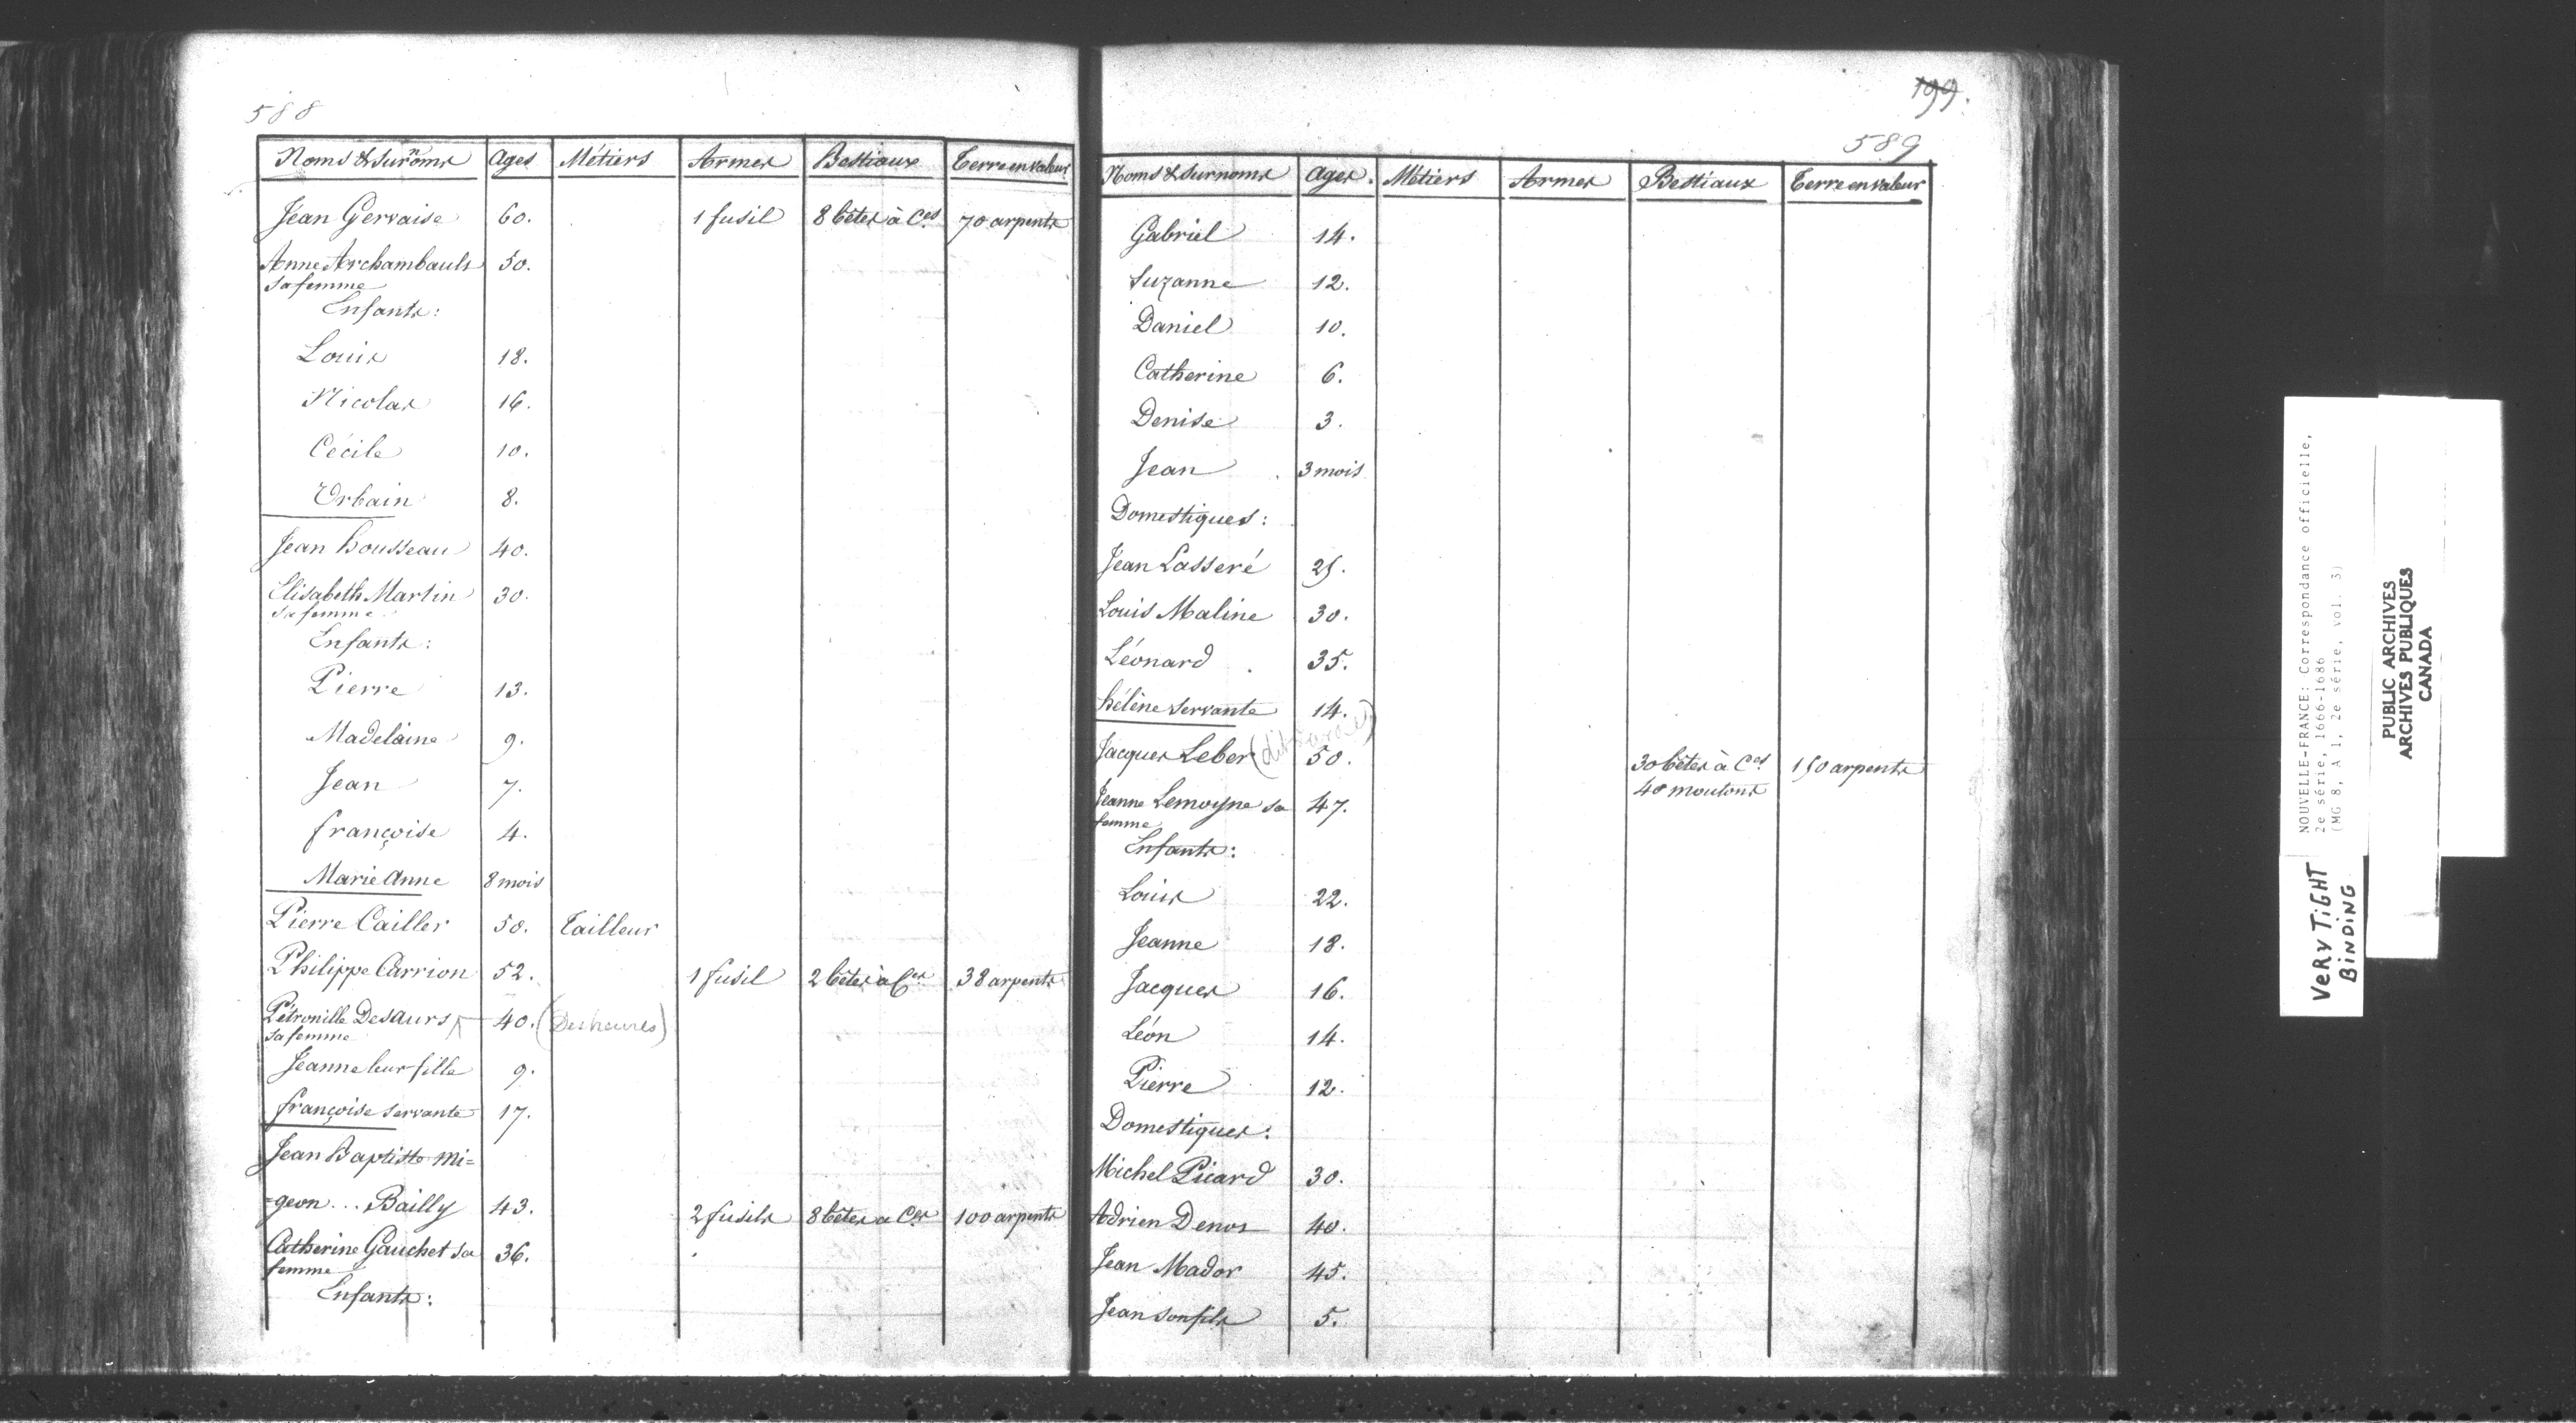 588
Noms & surnoms Ages Métiers Armes Bestiaux Terre en valeur
Jean Gervaise 60. 1 fusil 8 bêtes à Ces 70 arpents
Anne Archambault 50.
sa femme
Enfants:
Louis 18.
Nicolas 16.
Cécile 10.
Urbain 8.
Jean housseau 40.
Elisabeth Martin 30.
sa femme
Enfants:
Pierre 13.
Madelaine 9.
Jean 7.
françoise 4.
Marie Anne 8 mois
Pierre Cailler 50. Tailleur
Philippe Carrion 52. 1 fusil 2 bêtes à Ces 38 arpents
Pétronille Desaurs 40. (Desheures)
sa femme
Jeanne leur fille 9.
françoise servante 17.
Jean Baptiste Mi=
=geon ... Bailly 43. 2 fusils 8 bêtes a Ces 100 arpents
Catherine Gauchet sa 36.
femme
Enfants:
199.
589
Noms & surnoms Ages. Métiers Armes Bestiaux Terre en valeur
Gabriel 14.
Suzanne 12.
Daniel 10.
Catherine 6.
Denise 3.
Jean 3 mois
Domestiques:
Jean Lasseré 25.
Louis Maline 30.
Léonard 35.
hélène servante 14.
Jacques Leber 50. 30 bêtes à Ces 150 arpents
40 moutons
Jeanne Lemoyne sa 47.
femme
Enfants:
Louis 22.
Jeanne 18.
Jacques 16.
Léon 14.
Pierre 12.
Domestiques:
Michel Picard 30.
Adrien Denos 40.
Jean Mador 45.
Jean son fils 5.
NOUVELLE-FRANCE: Correspondance officielle,
2e série, 1666-1686
(MG 8, A 1, 2e série, vol. 3)
VERY TIGHT
BINDING
PUBLIC ARCHIVES
ARCHIVES PUBLIQUES
CANADA